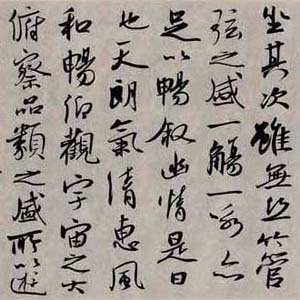 坐其次雖無絲竹管
弦之盛一觴一詠亦
足以暢叙幽情是日
也天朗氣清惠風
和暢仰觀宇宙之大
俯察品類之盛所以遊